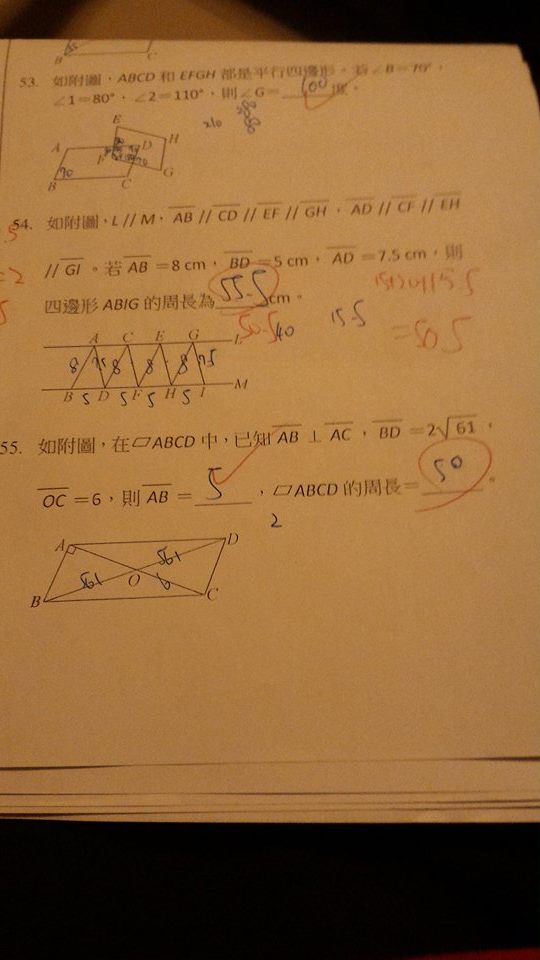 B C
53. 如附圖，ABCD 和 EFGH 都是平行四邊形。若∠B=70°，
∠1=80°，∠2=110°，則∠G= 100 度。
210
E
A D H
F
70 G
B C
54. 如附圖，L // M，AB // CD // EF // GH，AD // CF // EH
// GI。若 AB =8 cm，BD =5 cm，AD =7.5 cm，則
四邊形 ABIG 的周長為 55.5 cm。
50.5 40 15.5
=50.5
A C E G L
8 8 8 8 7.5
B 5 D 5 F 5 H 5 I M
55. 如附圖，在▱ABCD 中，已知 AB ⊥ AC，BD =2√61，
OC =6，則 AB = 5，▱ABCD 的周長= 50。
2
A D
√61
O
√61 6
B C